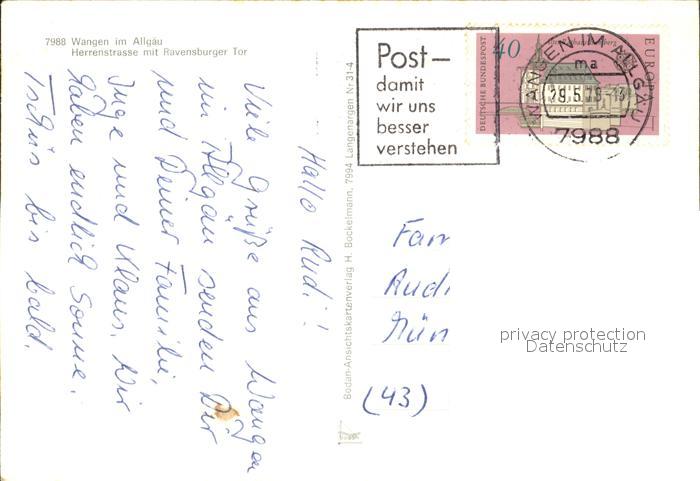 7988 Wangen im Allgäu
Herrenstrasse mit Ravensburger Tor
Hallo Rudi!
Viele Grüße aus Wangen
im Allgäu senden Dir
und Deiner Familie,
Inge und Klaus. Wir
haben endlich Sonne.
Tschüs bis bald.
Bodan-Ansichtskartenverlag H. Bockelmann, 7994 Langenargen Nr 31-4
Post–
damit
wir uns
besser
verstehen
40
DEUTSCHE BUNDESPOST
EUROPA
WANGEN IM ALLGÄU
ma
29.5.78-13
7988
Fam
Rudi
Mün
(43)
privacy protection
Datenschutz